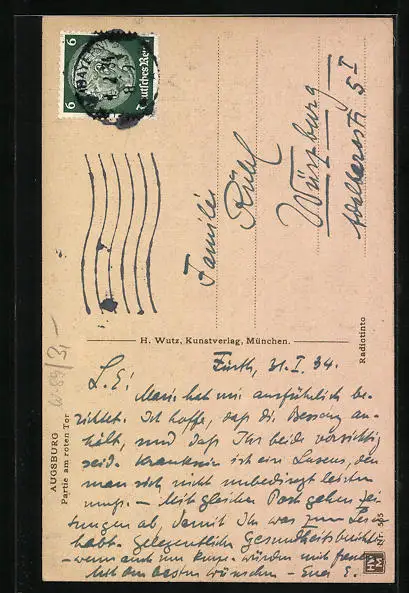 6 6
Deutsches Reich
BAYE
Familie
Röll
Würzburg
str. 5 I
Radiotinto
H. Wutz, Kunstverlag, München.
3,-
AUGSBURG
Partie am roten Tor
Fürth, 31. I. 34.
L. E!
Marie hat mir ausführlich be-
richtet. Ich hoffe, daß die Besserg an-
hält, und daß Ihr beide vorsichtig
seid. Kranksein ist ein Luxus, den
man sich nicht unbedingt leisten
muß. – Mit gleicher Post gehen Zei-
tungen ab, damit Ihr was zum Lesen
habt. Gelegentliche Gesundheitsberichte
– wenn auch nur kurze – würden mich freuen
Mit den besten Wünschen – Euer E.
HWM
Nr. 585